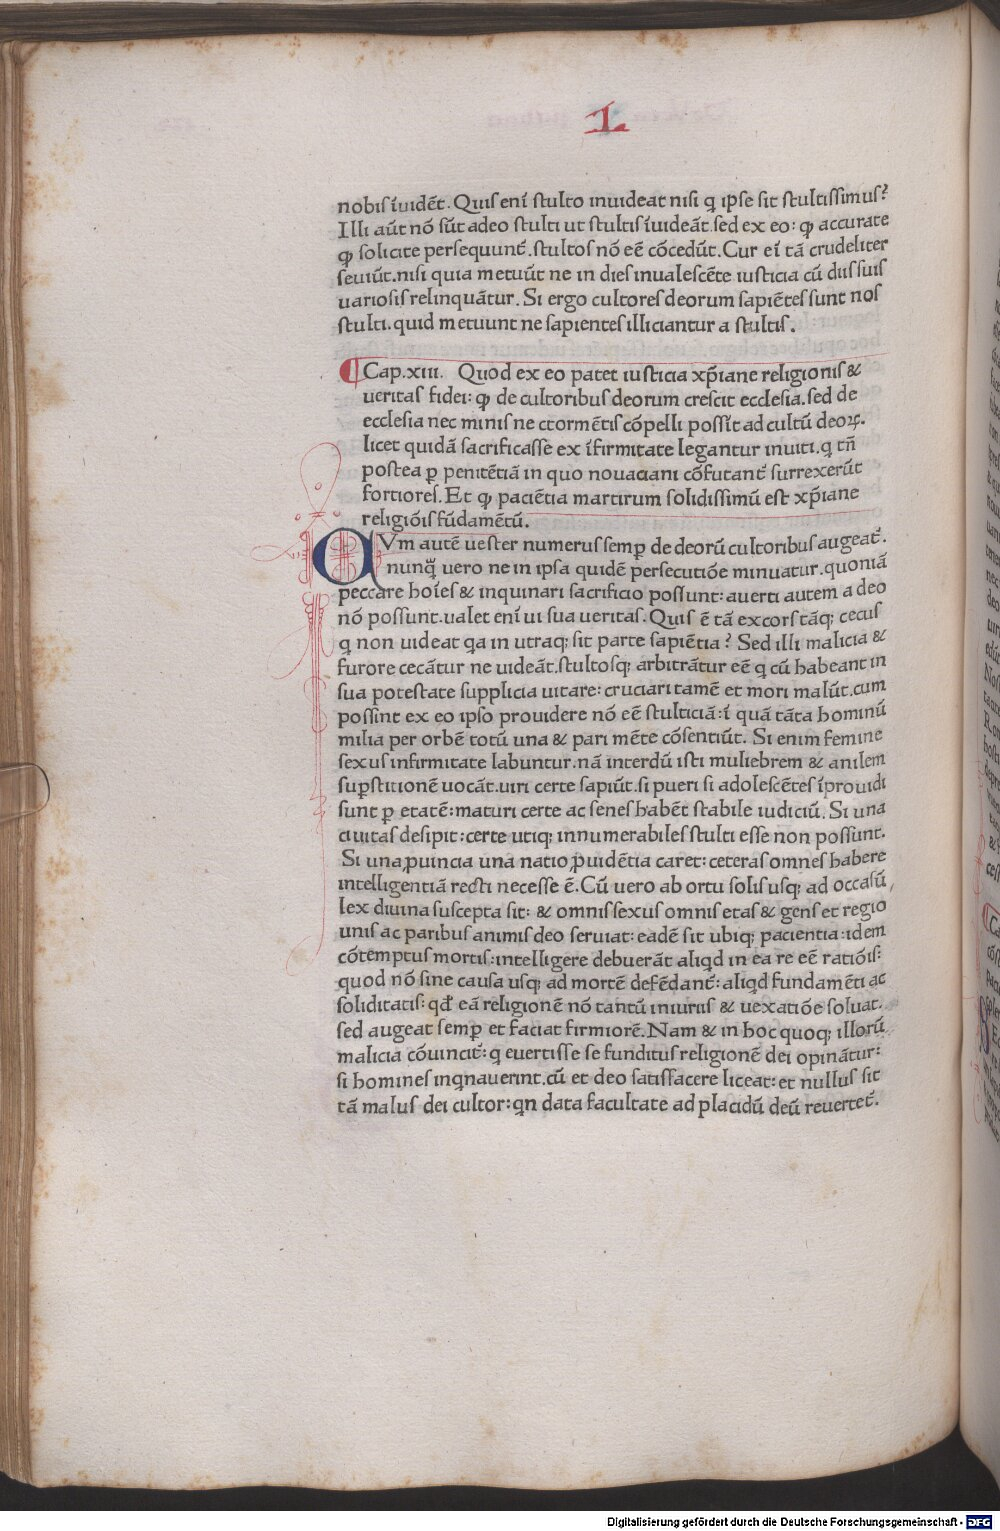 L
nobis ĩuidẽt. Quis enĩ stulto inuideat nisi q ipse sit stultissimus?
Illi aũt nõ sũt adeo stulti ut stultis ĩuideãt. sed ex eo: ꝙ accurate
ꝙ solicite persequunt̃. stultos nõ eẽ cõcedũt. Cur eĩ tã crudeliter
seuiũt. nisi quia metuũt ne in dies inualescẽte iusticia cũ diis suis
uariosis relinquãtur. Si ergo cultores deorum sapiẽtes sunt nos
stulti. quid metuunt ne sapientes illiciantur a stultis.
Cap. xiii. Quod ex eo patet iusticia xp̃iane religionis &
ueritas fidei: ꝙ de cultoribus deorum crescit ecclesia. sed de
ecclesia nec minis ne ctormẽtis cõpelli possĩt ad cultũ deoꝝ.
licet quidã sacrificasse ex ĩfirmitate legantur inuiti. q tñ
postea ꝑ penitẽtiã in quo nouaciani cõfutant̃ surrexerũt
fortiores. Et ꝙ paciẽtia martirum solidissimũ est xp̃iane
religiõis fũdamẽtũ.
CVm autẽ uester numerus semꝑ de deorũ cultoribus augeat̃.
nunq̃ uero ne in ipsa quidẽ persecutiõe minuatur. quoniã
peccare hoĩes & inquinari sacrificio possunt: auerti autem a deo
nõ possunt. ualet enĩ ui sua ueritas. Quis ẽ tã excors tãqꝫ cecus
q non uideat qa in utraqꝫ sit parte sapiẽtia? Sed illi malicia &
furore cecãtur ne uideãt. stultosqꝫ arbitrãtur eẽ q cũ habeant in
sua potestate supplicia uitare: cruciari tamẽ et mori malũt. cum
possint ex eo ipso prouidere nõ eẽ stulticiã: ĩ quã tãta hominũ
milia per orbẽ totũ una & pari mẽte cõsentiũt. Si enim femine
sexus infirmitate labuntur. nã interdũ isti muliebrem & anilem
suꝑstitionẽ uocãt. uiri certe sapiũt. si pueri si adolescẽtes ĩprouidi
sunt ꝑ etatẽ: maturi certe ac senes habẽt stabile iudiciũ. Si una
ciuitas desipit: certe utiqꝫ innumerabiles stulti esse non possunt.
Si una ꝓuincia una natio ꝓuidẽtia caret: ceteras omnes habere
intelligentiã recti necesse ẽ. Cũ uero ab ortu solis usqꝫ ad occasũ
lex diuina suscepta sit: & omnis sexus omnis etas & gens et regio
unis ac paribus animis deo seruiat: eadẽ sit ubiqꝫ pacientia: idem
cõtemptus mortis: intelligere debuerãt aliqd in ea re eẽ ratiõis:
quod nõ sine causa usqꝫ ad mortẽ defẽdant̃: aliqd fundamẽti ac
soliditatis: qđ eã religionẽ nõ tantũ iniuriis & uexatiõe soluat.
sed augeat semꝑ et faciat firmiorẽ. Nam & in hoc quoqꝫ illorũ
malicia cõuincit̃: q euertisse se funditus religionẽ dei opinãtur:
si homines inqnauerint. cũ et deo satisfacere liceat: et nullus sit
tã malus dei cultor: qn data facultate ad placidũ deũ reuertet̃.
Digitalisierung gefördert durch die Deutsche Forschungsgemeinschaft - DFG